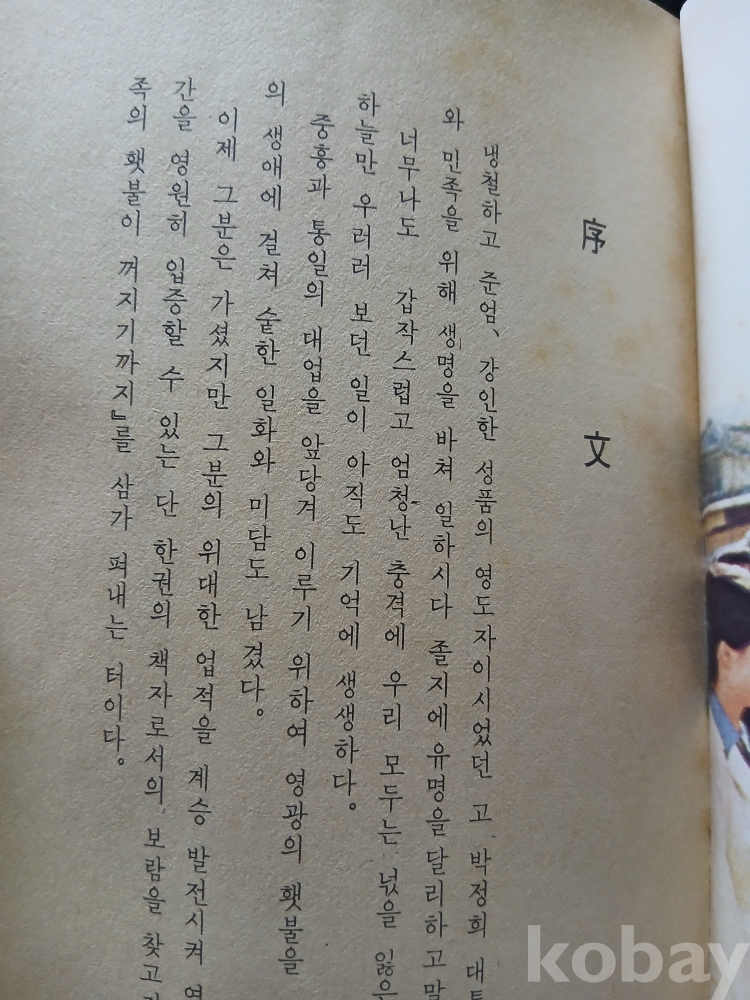 序 文
냉철하고 준엄、강인한 성품의 영도자이시었던 고 박정희 대
와 민족을 위해 생명을 바쳐 일하시다 졸지에 유명을 달리하고 말
너무나도 갑작스럽고 엄청난 충격에 우리 모두는 넋을 잃은
하늘만 우러러 보던 일이 아직도 기억에 생생하다。
중흥과 통일의 대업을 앞당겨 이루기 위하여 영광의 횃불을
의 생애에 걸쳐 숱한 일화와 미담도 남겼다。
이제 그분은 가셨지만 그분의 위대한 업적을 계승 발전시켜
간을 영원히 입증할 수 있는 단 한권의 책자로서의 보람을 찾고
족의 횃불이 꺼지기까지』를 삼가 펴내는 터이다。
kobay